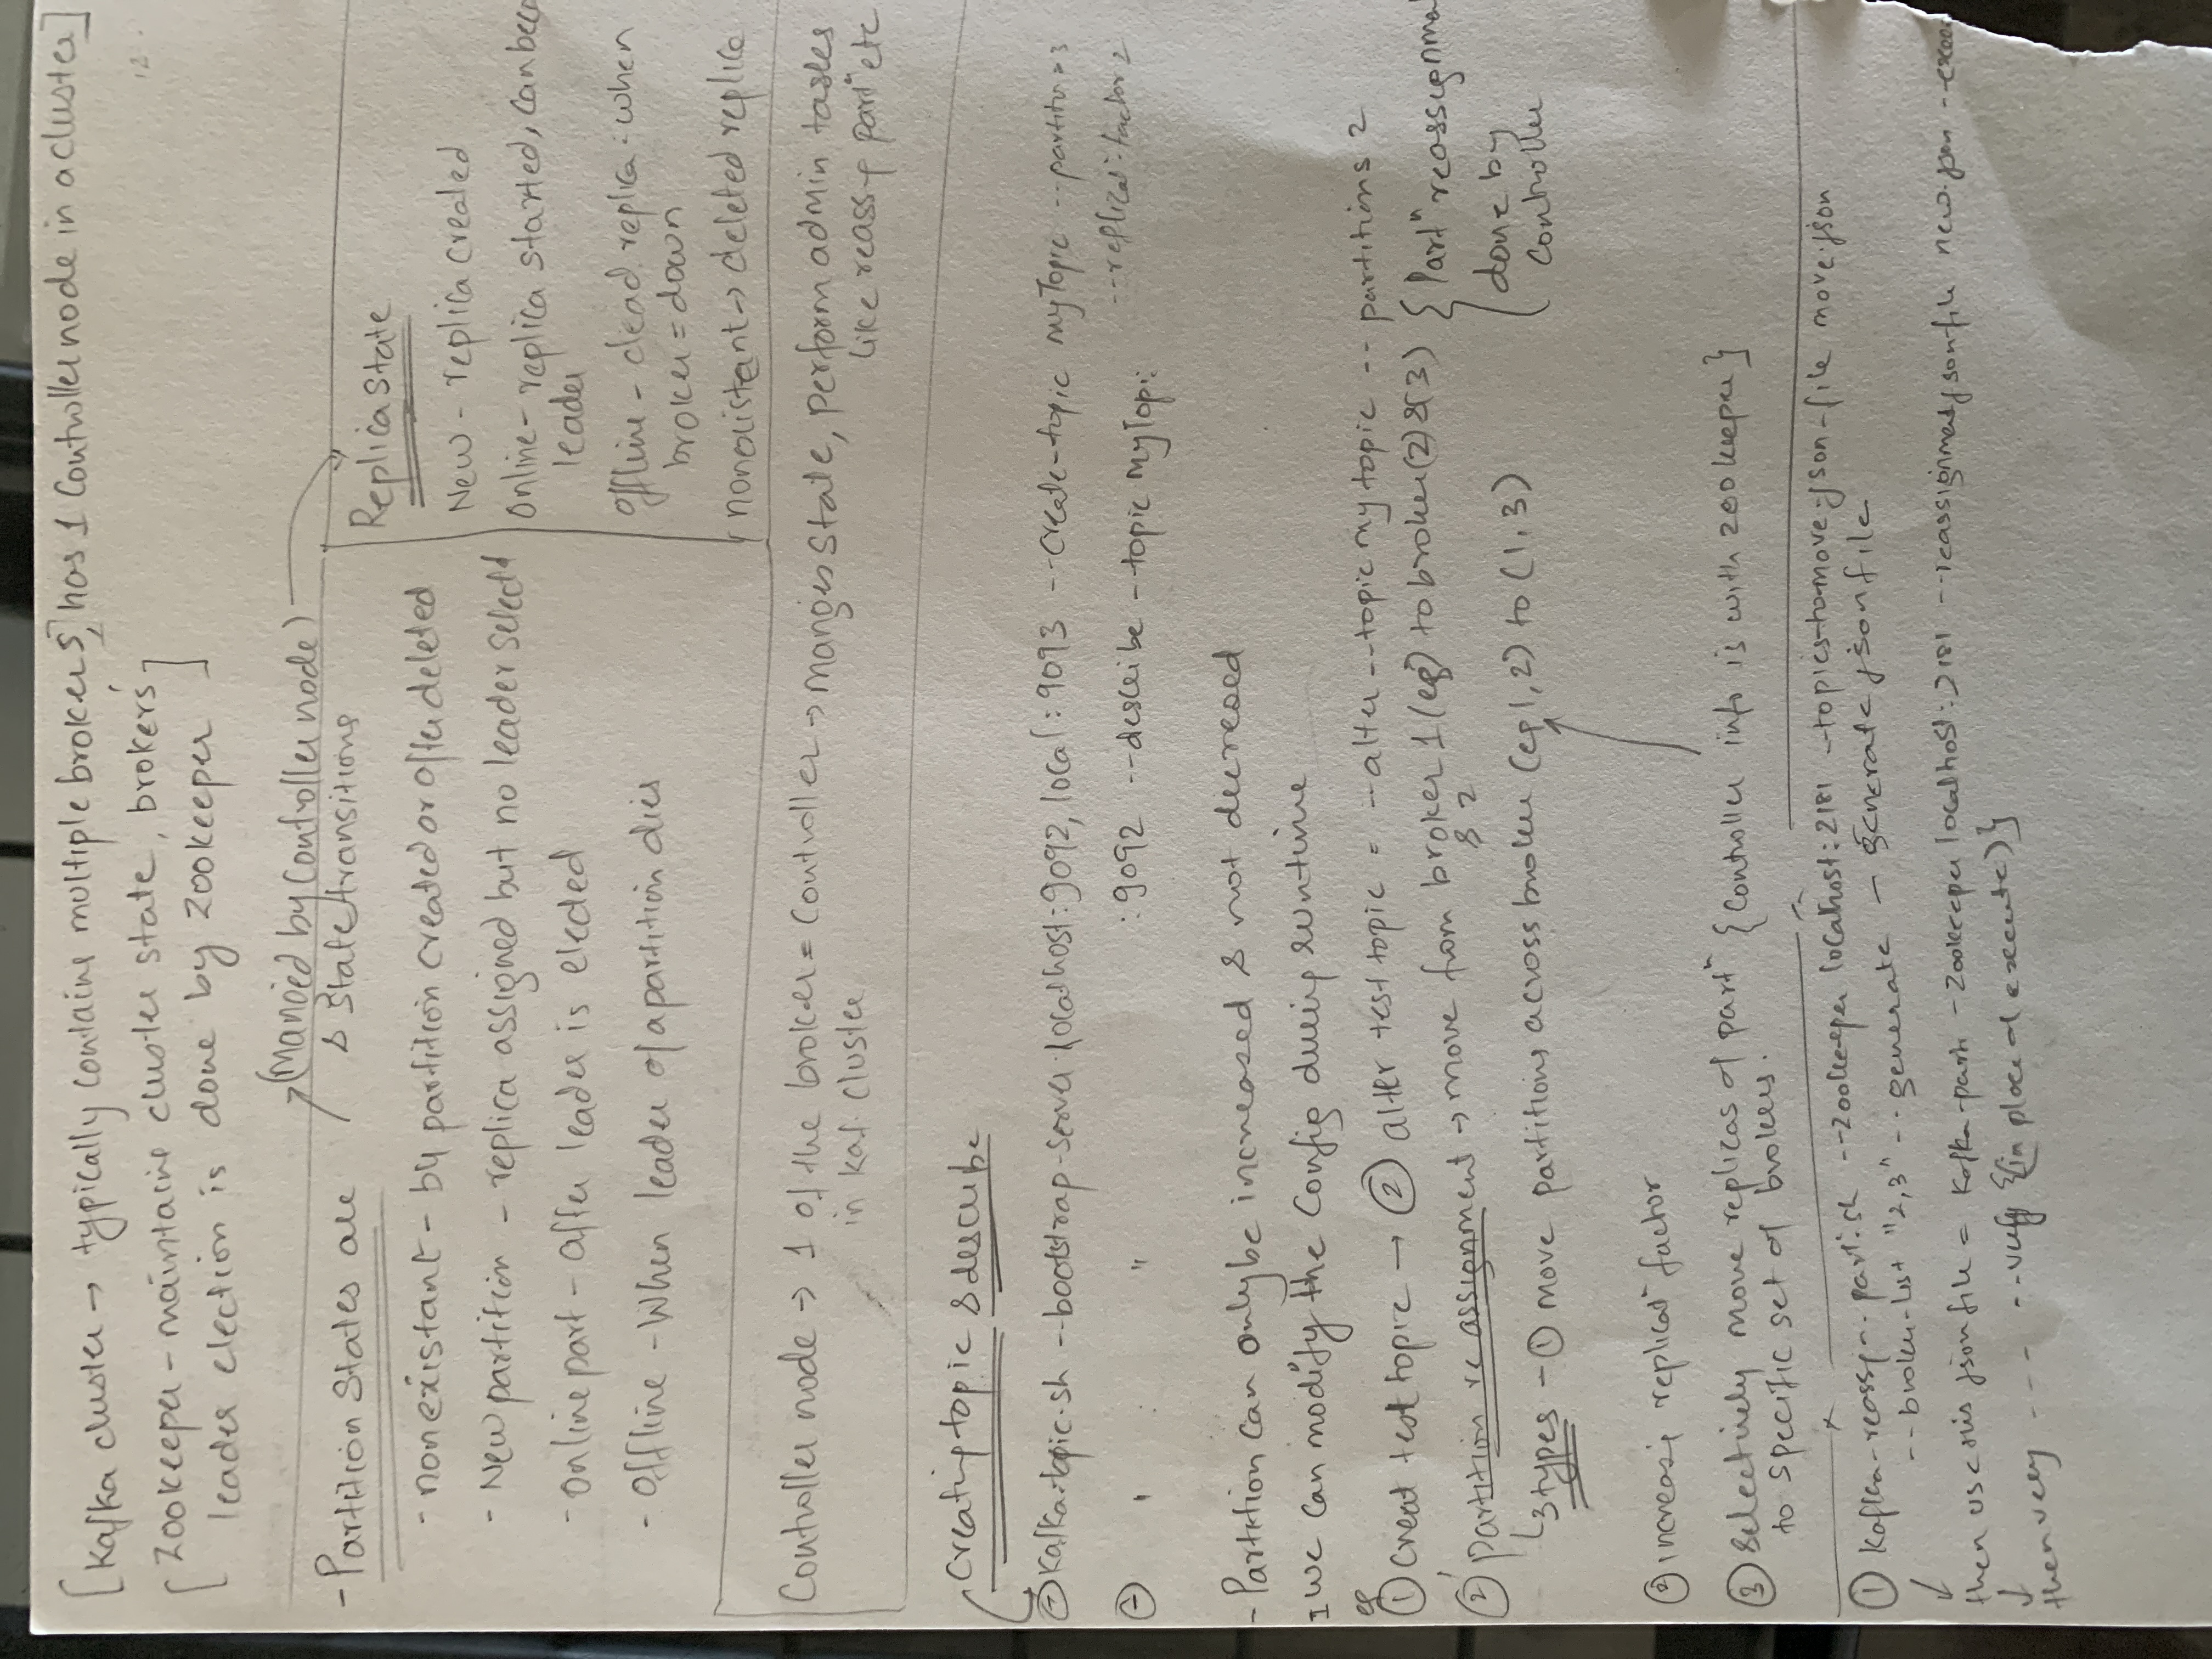 [Kafka cluster → typically contains multiple brokers], has 1 Controller node in a cluster]
[Zookeeper - maintains cluster state, brokers,
leader election is done by Zookeeper]
(Manged by Controller node)
& State transitions
- Partition States are
- nonexistant - b4 partition created or after deleted
- New partition - replica assigned but no leader selectd
- Online part - after leader is elected
- Offline - When leader of a partition dies
Replica State
New - replica created
Online - replica started, can beco
leader
Offline - dead replica: when
broker = down
nonexistent → deleted replica
Controller node → 1 of the broker = Controller → manges State, perform admin tasks
in kaf. cluster
like reassg partⁿ etc
Creating topic & describe
- Kafka-topic.sh --bootstrap-server localhost:9092, local:9093 --create-topic myTopic --partito 3
--replicatⁿ factor 2
- " " :9092 --describe --topic myTopi
- Partition can only be increased & not decreased
I we can modify the Config during runtime
eg
① Creat test topic → ② alter test topic = --alter --topic my topic -- partitions 2
② partition re assignment → move from broker 1 (eg) to broker(2) &(3) { Partⁿ reassignme
& 2
done by
Controller
↳ 3 types - ① move partitions across broker (eg 1, 2) to (1, 3)
② increasing replicatⁿ factor
③ Selectively move replicas of partⁿ {Controller info is with zookeeper}
to specific set of brokers.
① Kafka-reassgn. part.sh --zookeeper localhost:2181 --topics-to-move-json-file move.json
--broker-list "2,3" -- generate - generate json file
↓
then use this json file = Kafka-part -zookeeper localhost:2181 --reassignment json file new.json --execu
↓
then verfy - - - --verfy {(in place of execute)}